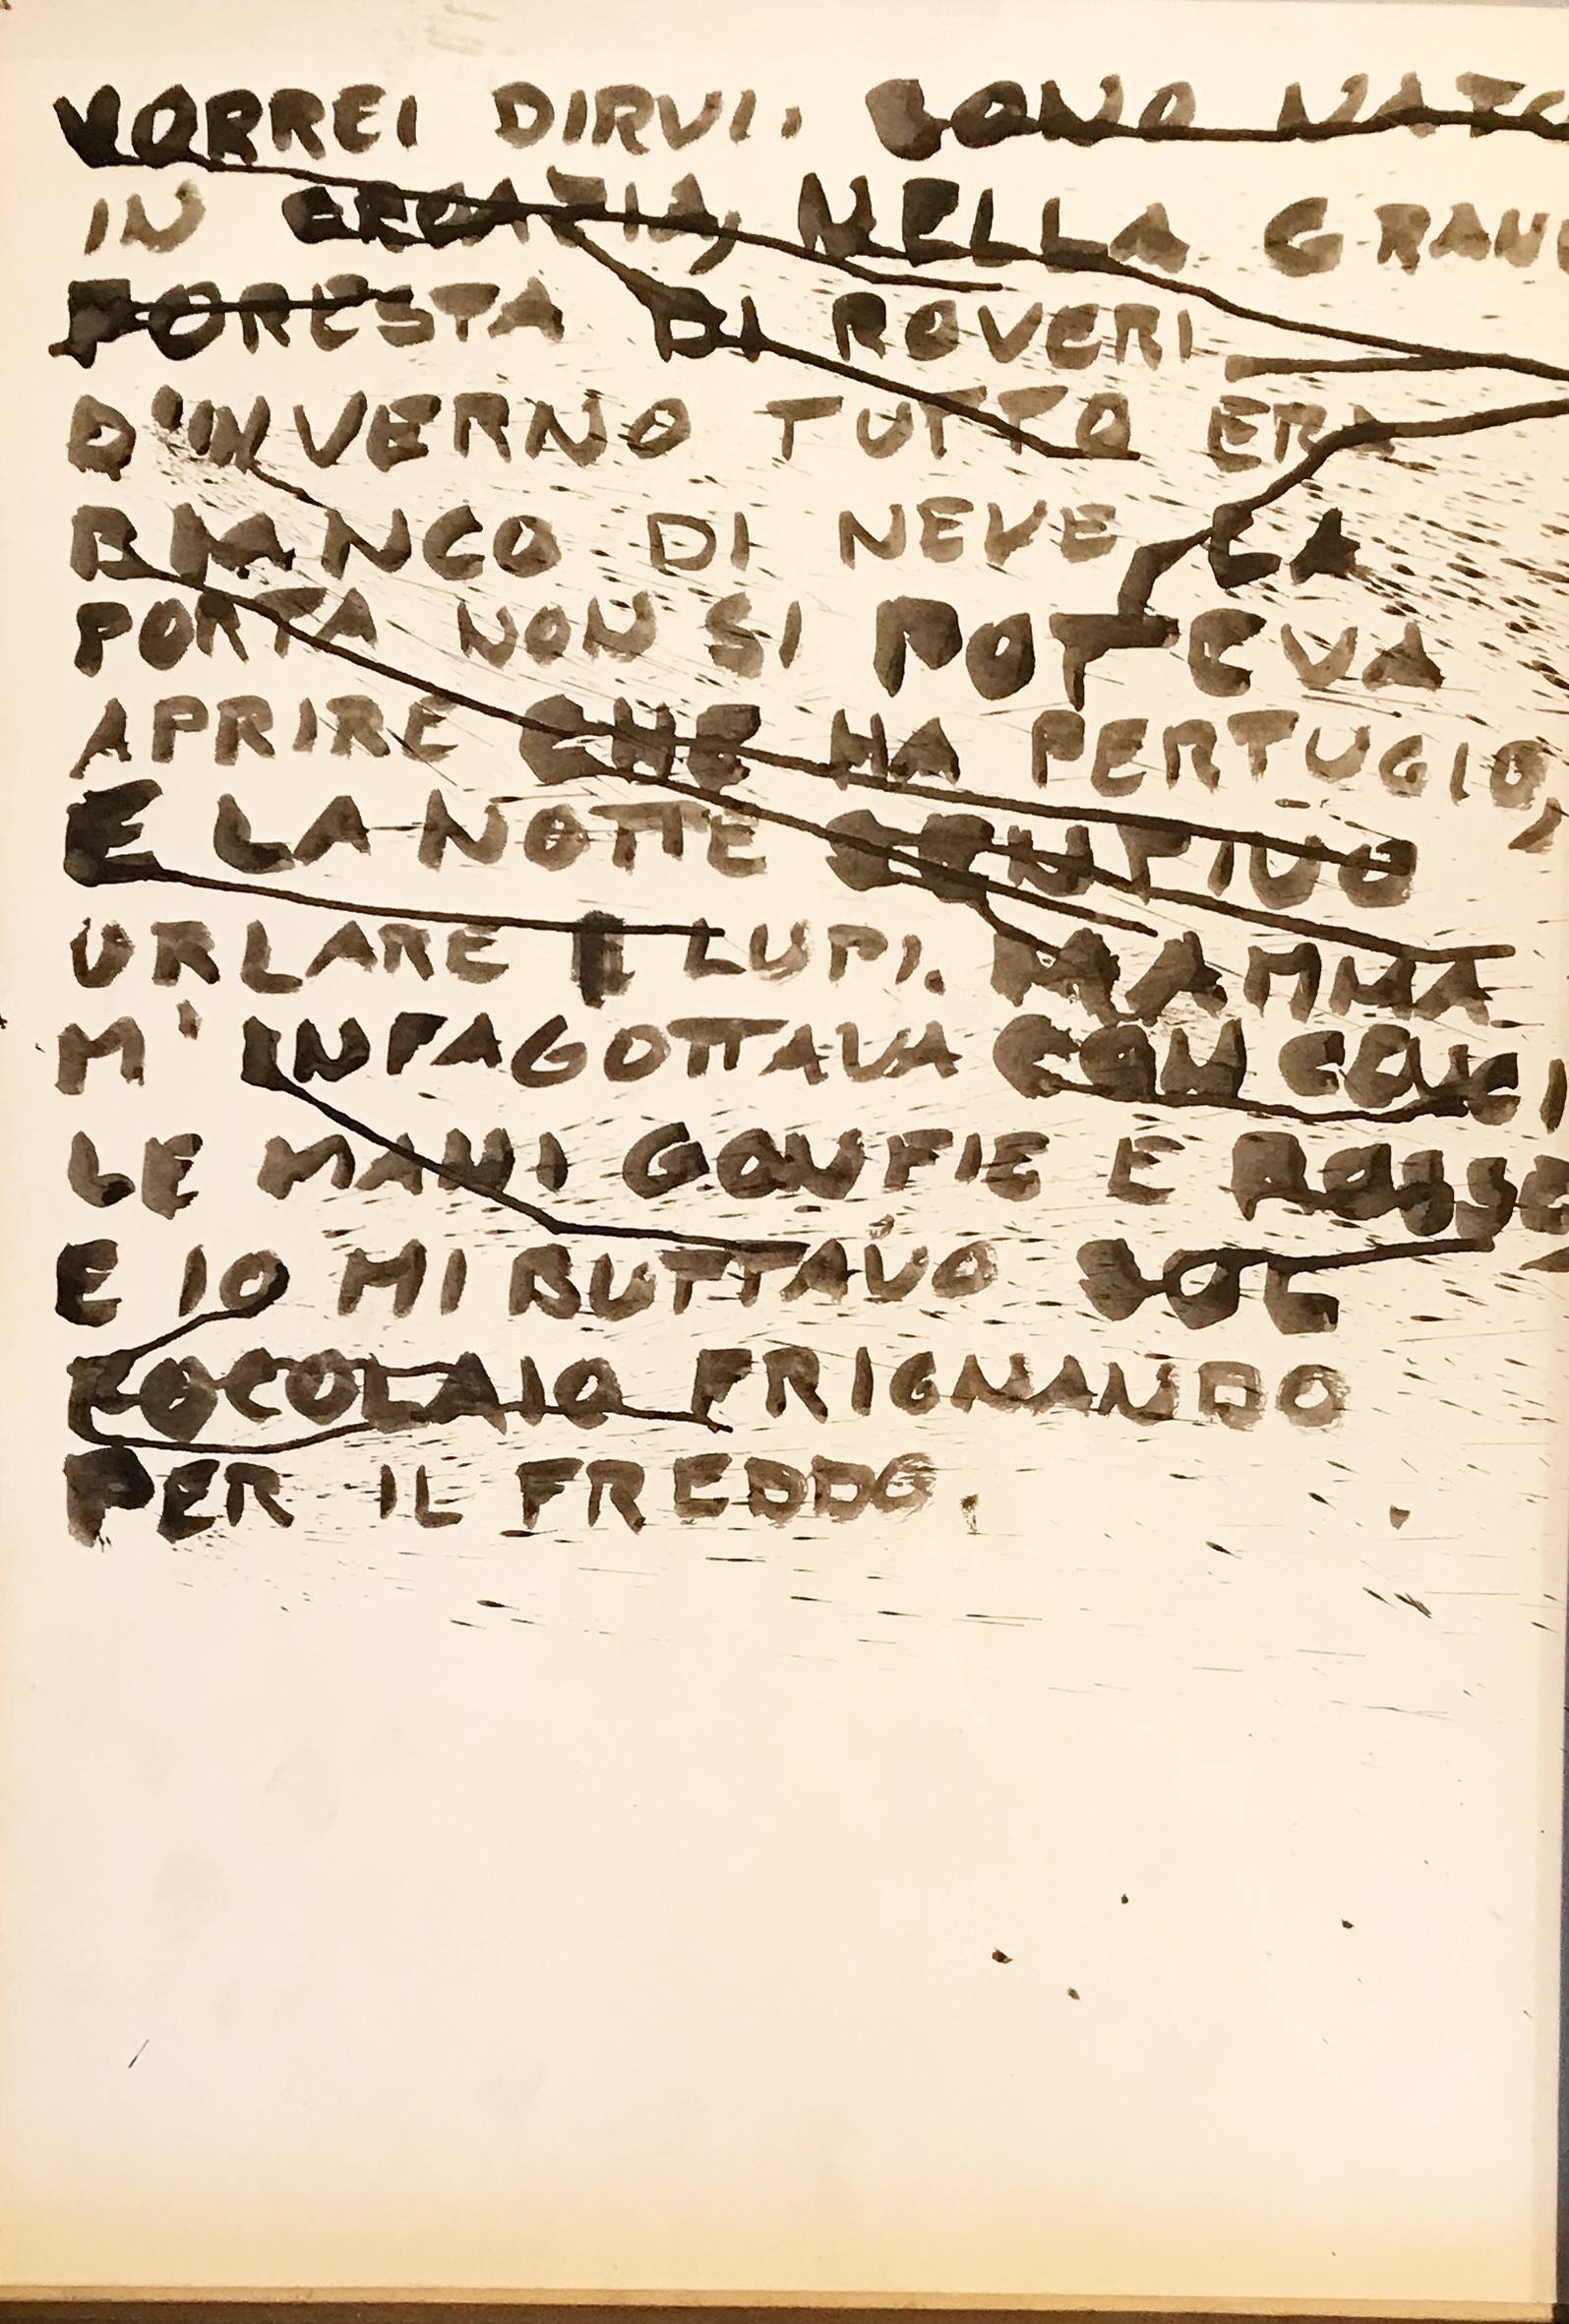 VORREI DIRVI. SONO NATO
IN CROAZIA, NELLA GRAND
FORESTA DI ROVERI
D'INVERNO TUTTO ERA
BIANCO DI NEVE LA
PORTA NON SI POTEVA
APRIRE CHE HA PERTUGIO,
E LA NOTTE SENTIVO
URLARE I LUPI. MAMMA
M'INFAGOTTAVA CON CENCI
LE MANI GONFIE E ROSSE
E IO MI BUTTAVO SUL
FOCOLAIO FRIGNANDO
PER IL FREDDO.